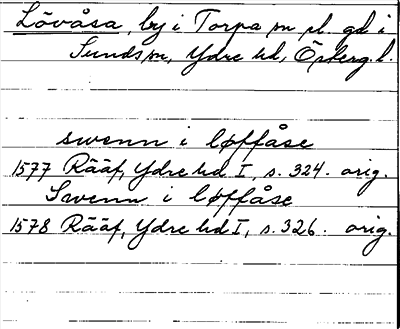 Lövåsa, by i Torpa sn el. gd i
Sunds sn, Ydre hd, Österg. l.
swenn i løffåse
1577 Rääf, Ydre hd I, s. 324. orig.
Swenn i løffåse
1578 Rääf, Ydre hd I, s. 326. orig.